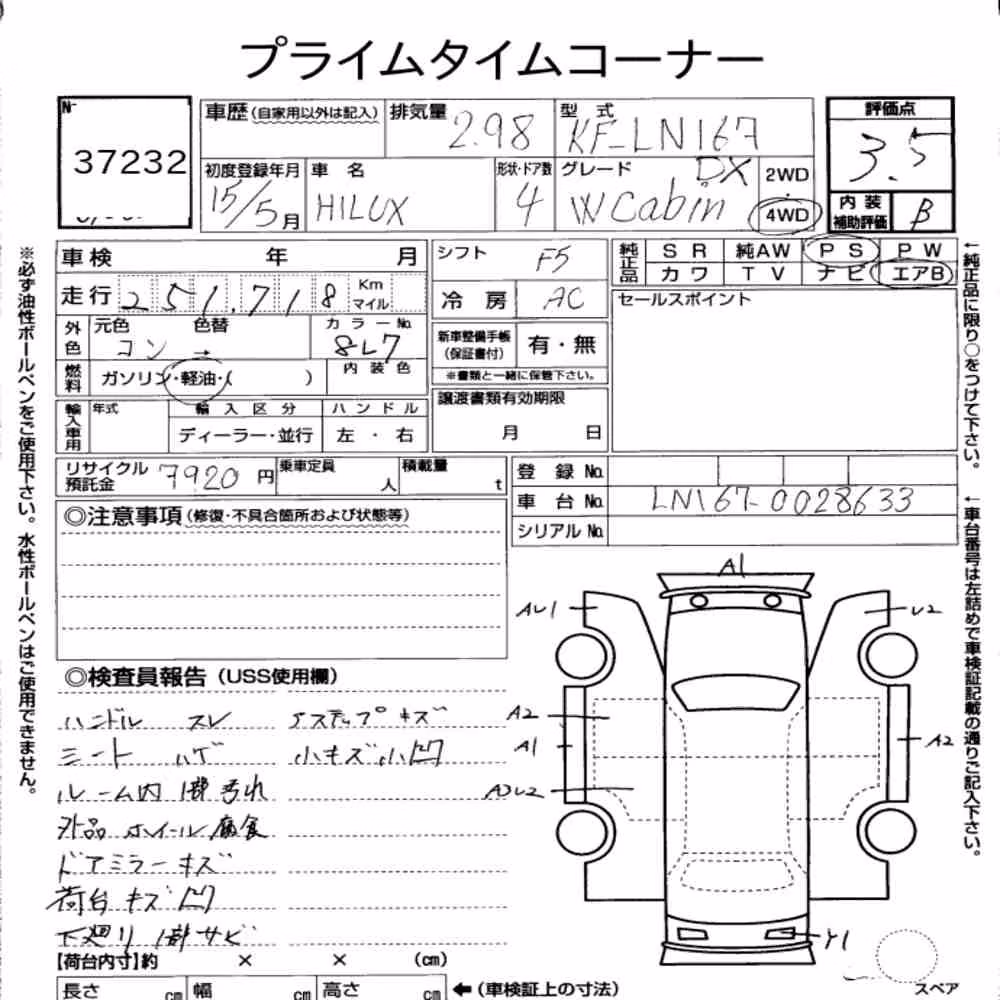 プライムタイムコーナー
No.
37232
車歴(自家用以外は記入)
排気量 2.98
型式 KF-LN167
評価点
3.5
初度登録年月 15/5月
車名 HILUX
形状・ドア数 4
グレード DX
W Cabin
2WD
・
4WD
内装
補助評価 B
車検 年 月
シフト F5
純正品 SR 純AW PS PW
カワ TV ナビ エアB
走行 251,718 Km マイル
冷房 AC
セールスポイント
外色 元色 コン → 色替 カラーNo. 8L7
新車整備手帳
(保証書付) 有・無
※書類と一緒に保管下さい。
燃料 ガソリン・軽油・( )
内装色
譲渡書類有効期限
月 日
輸入車用 年式 輸入区分 ハンドル
ディーラー・並行 左・右
リサイクル
預託金 7920円
乗車定員 人
積載量 t
登録No.
車台No. LN167-0028633
シリアルNo.
◎注意事項(修復・不具合箇所および状態等)
◎検査員報告(USS使用欄)
ハンドル スレ
シート ハゲ
ルーム内 1部 汚れ
外品 ホイール腐食
ドアミラーキズ
荷台 キズ 凹
下廻り 1部サビ
Rステップ キズ
小キズ 小凹
A1
AU1
U2
A2
A1
A2
Y1
【荷台内寸】約 × × (cm)
長さ cm 幅 cm 高さ cm ←(車検証上の寸法)
スペア
※必ず油性ボールペンをご使用下さい。水性ボールペンはご使用できません。
←純正品に限り○をつけて下さい。
←車台番号は左詰めで車検証記載の通りご記入下さい。